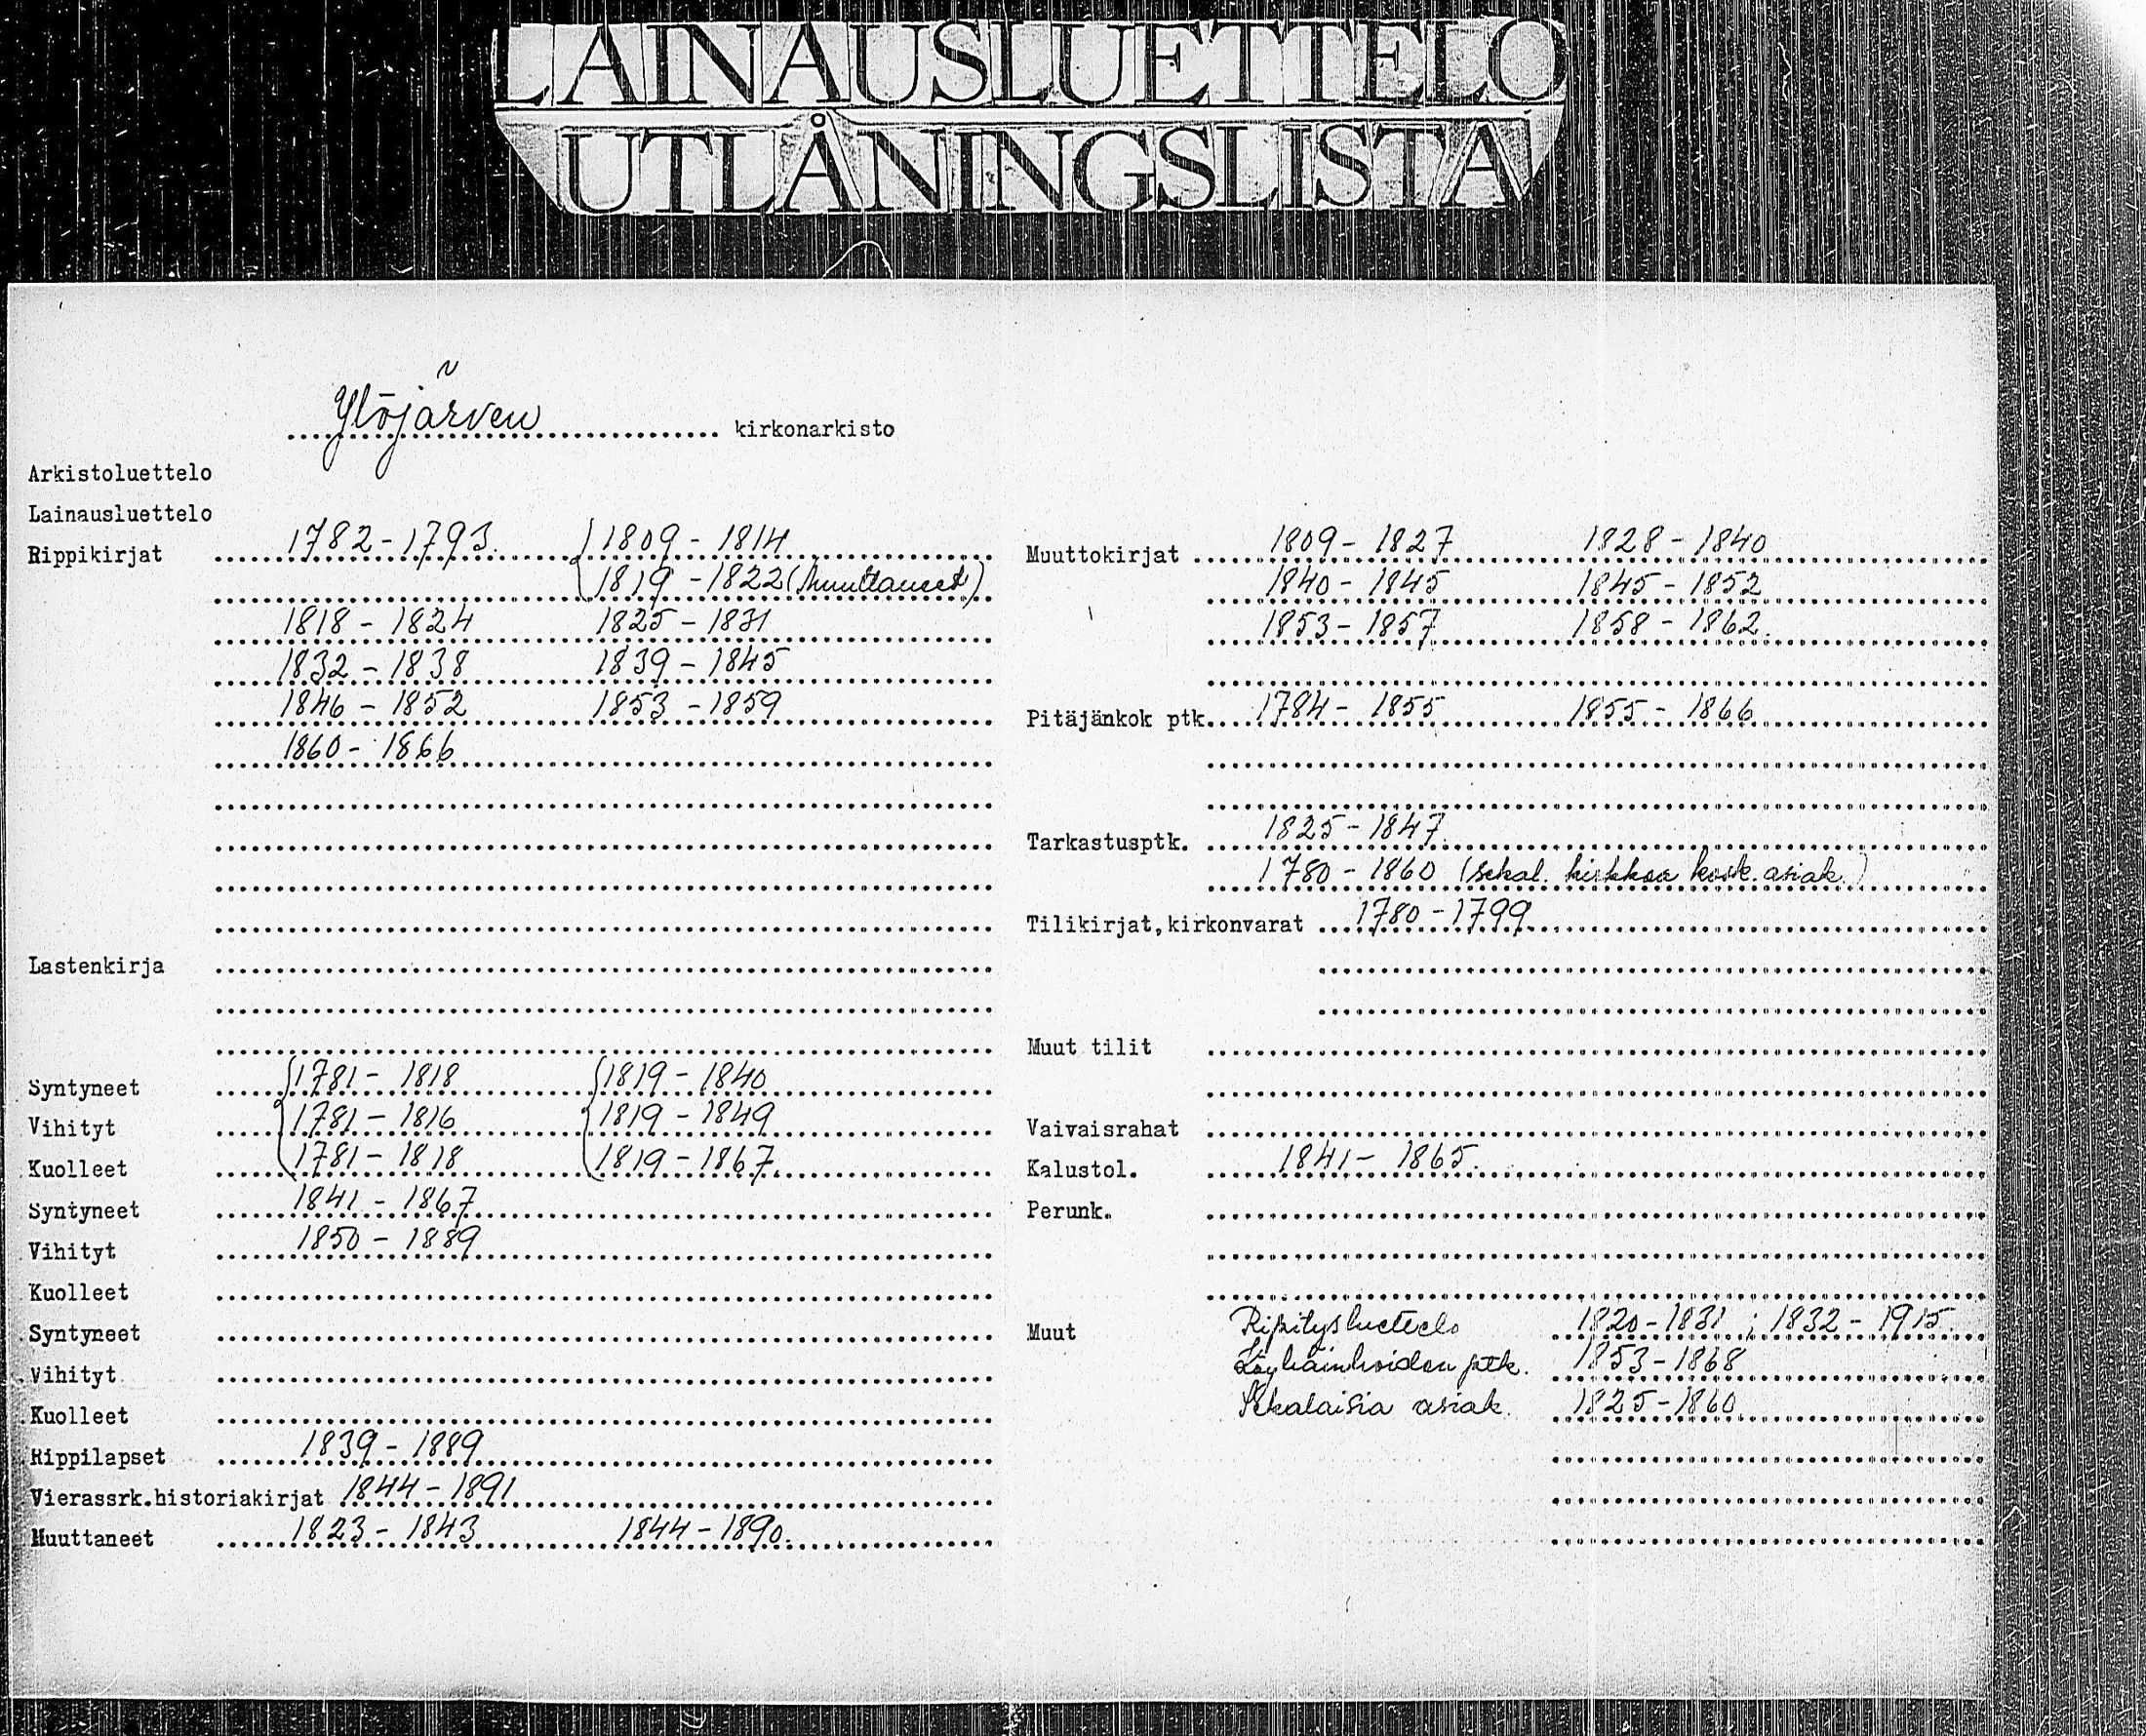 LAINAUSLUETTELO
UTLÅNINGSLISTA
Ylöjärven kirkonarkisto
Arkistoluettelo
Lainausluettelo
Rippikirjat 1782-1793. 1809 - 1814
1819 - 1822 (Muuttaneet)
1818 - 1824 1825 - 1831
1832 - 1838 1839 - 1845
1846 - 1852 1853 - 1859
1860 - 1866
Lastenkirja
Syntyneet 1781 - 1818 1819 - 1840
Vihityt 1781 - 1816 1819 - 1849
Kuolleet 1781 - 1818 1819 - 1867.
Syntyneet 1841 - 1867
Vihityt 1850 - 1889
Kuolleet
Syntyneet
Vihityt
Kuolleet
Rippilapset 1839 - 1889
Vierassrk.historiakirjat 1844 - 1891
Muuttaneet 1823 - 1843 1844 - 1890.
Muuttokirjat 1809 - 1827 1828 - 1840
1840 - 1845 1845 - 1852
1853 - 1857 1858 - 1862.
Pitäjänkok ptk. 1784 - 1855 1855 - 1866
Tarkastusptk. 1825 - 1847.
1780 - 1860 (sekal. kirkkoa kosk. asiak.)
Tilikirjat,kirkonvarat 1780 - 1799.
Muut tilit
Vaivaisrahat
Kalustol. 1841 - 1865.
Perunk.
Muut Ripitysluettelo 1820-1831 ; 1832 - 1915.
Köyhäinhoidon ptk. 1853 - 1868
Sekalaisia asiak. 1825 - 1860